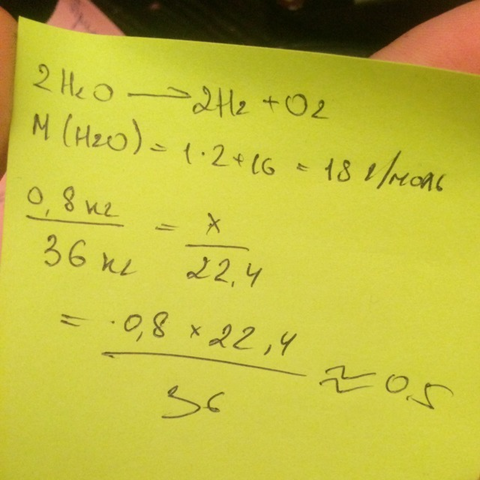 2H₂O → 2H₂ + O₂
M (H₂O) = 1·2+16 = 18 г/моль
0,8 кг / 36 кг = x / 22,4
= ·0,8 × 22,4 / 36 ≈ 0,5